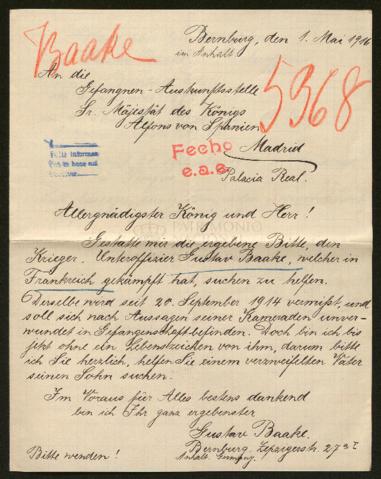 Baake
Bernburg, den 1. Mai 1916
im Anhalt
5368
An die
Gefangnen-Auskunftsstelle
Sr. Majestät des Königs
Alfons von Spanien
Madrid
Palacia Real.
Fecho
e.a.e.
Allergnädigster König und Herr!
Gestatte mir die ergebene Bitte, den
Krieger. Unteroffizier Gustav Baake, welcher in
Frankreich gekämpft hat, suchen zu helfen.
Derselbe wird seit 20. September 1914 vermißt, und
soll sich nach Aussagen seiner Kameraden unver-
wundet in Gefangenschaft befinden. Doch bin ich bis
jetzt ohne ein Lebenszeichen von ihm, darum bitte
ich Sie herzlich, helfen Sie einem verzweifelten Vater
seinen Sohn suchen.
Im Voraus für Alles bestens dankend
bin ich Ihr ganz ergebenster
Gustav Baake.
Bernburg, Leipzigerstr. 27
Bitte wenden!